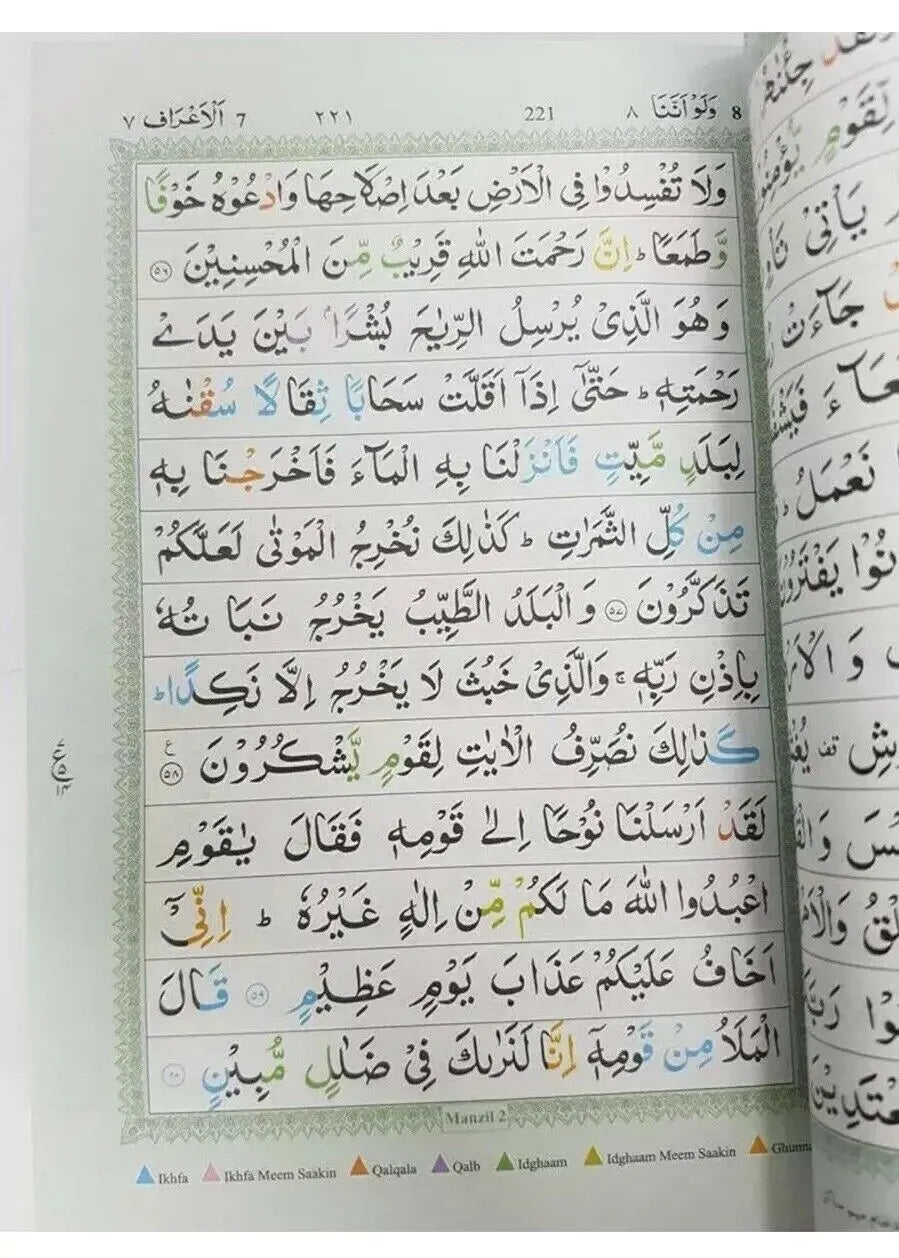 8 وَلَوْ اَنَّنَا ٨ 221 ٢٢١ 7 اَلْاَعْرَاف ٧
وَلَا تُفْسِدُوْا فِى الْاَرْضِ بَعْدَ اِصْلَاحِهَا وَادْعُوْهُ خَوْفًا
وَّطَمَعًا ؕ اِنَّ رَحْمَتَ اللّٰهِ قَرِيْبٌ مِّنَ الْمُحْسِنِيْنَ ۝٥٦
وَهُوَ الَّذِىْ يُرْسِلُ الرِّيٰحَ بُشْرًاۢ بَيْنَ يَدَىْ
رَحْمَتِهٖ ؕ حَتّٰٓى اِذَآ اَقَلَّتْ سَحَابًا ثِقَالًا سُقْنٰهُ
لِبَلَدٍ مَّيِّتٍ فَاَنْزَلْنَا بِهِ الْمَآءَ فَاَخْرَجْنَا بِهٖ
مِنْ كُلِّ الثَّمَرٰتِ ؕ كَذٰلِكَ نُخْرِجُ الْمَوْتٰى لَعَلَّكُمْ
تَذَكَّرُوْنَ ۝٥٧ وَالْبَلَدُ الطَّيِّبُ يَخْرُجُ نَبَاتُهٗ
بِاِذْنِ رَبِّهٖ ۚ وَالَّذِىْ خَبُثَ لَا يَخْرُجُ اِلَّا نَكِدًا ؕ
كَذٰلِكَ نُصَرِّفُ الْاٰيٰتِ لِقَوْمٍ يَّشْكُرُوْنَ ۝٥٨ ع
لَقَدْ اَرْسَلْنَا نُوْحًا اِلٰى قَوْمِهٖ فَقَالَ يٰقَوْمِ
اعْبُدُوا اللّٰهَ مَا لَكُمْ مِّنْ اِلٰهٍ غَيْرُهٗ ؕ اِنِّىْٓ
اَخَافُ عَلَيْكُمْ عَذَابَ يَوْمٍ عَظِيْمٍ ۝٥٩ قَالَ
الْمَلَاُ مِنْ قَوْمِهٖٓ اِنَّا لَنَرٰىكَ فِىْ ضَلٰلٍ مُّبِيْنٍ ۝٦٠
Manzil 2
Ikhfa Ikhfa Meem Saakin Qalqala Qalb Idghaam Idghaam Meem Saakin
لِقَوْمٍ يُّؤْمِنُوْ
يَاْتِىْ
جَآءَتْ
نَعْمَلُ ؕ
يَفْتَرُوْنَ